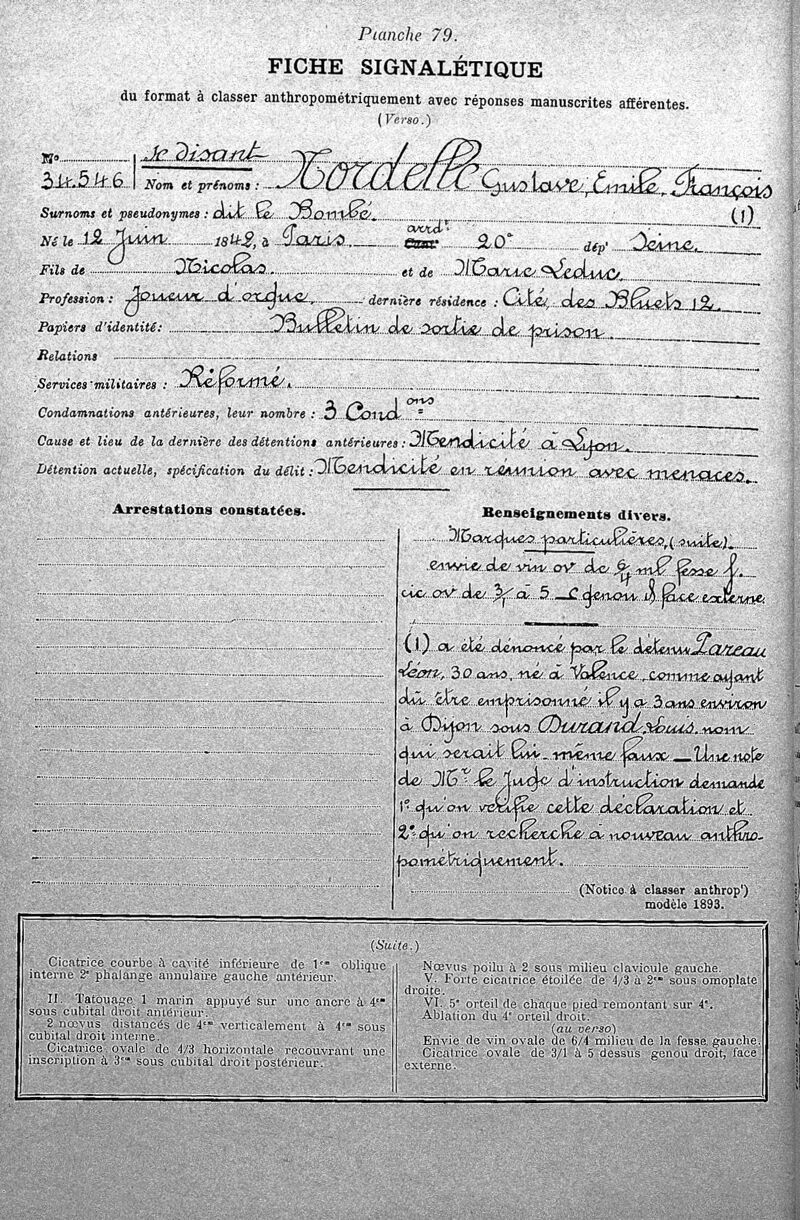 Planche 79.
FICHE SIGNALÉTIQUE
du format à classer anthropométriquement avec réponses manuscrites afférentes.
(Verso.)
No
34.546
se disant
Nom et prénoms : Nordelle Gustave, Emile, François
Surnoms et pseudonymes : dit le Bombé. (1)
Né le 12 Juin 1842, à Paris. arrdt 20e dépt Seine.
Fils de Nicolas. et de Marie Leduc.
Profession : Joueur d'orgue. dernière résidence : Cité, des Bluets 12.
Papiers d'identité: Bulletin de sortie de prison.
Relations
Services militaires : Réformé.
Condamnations antérieures, leur nombre : 3 Condons
Cause et lieu de la dernière des détentions antérieures : Mendicité à Lyon.
Détention actuelle, spécification du délit : Mendicité en réunion avec menaces.
Arrestations constatées.
Renseignements divers.
Marques particulières, (suite).
envie de vin ov de 6/4 ml fesse g.
cic ov de 3/1 à 5 genou face externe.
(1) a été dénoncé par le détenu Pareau
Léon, 30 ans, né à Valence, comme ayant
dû être emprisonné il y a 3 ans environ
à Dijon sous Durand Louis, nom
qui serait lui-même faux — Une note
de Mr le Juge d'instruction demande
1o qu'on vérifie cette déclaration et
2o qu'on recherche à nouveau anthro-
pométriquement.
(Notice à classer anthropt)
modèle 1893.
(Suite.)
Cicatrice courbe à cavité inférieure de 1cm oblique
interne 2e phalange annulaire gauche antérieur.
II. Tatouage 1 marin appuyé sur une ancre à 4cm
sous cubital droit antérieur.
2 nœvus distancés de 4cm verticalement à 4cm sous
cubital droit interne.
Cicatrice ovale de 4/3 horizontale recouvrant une
inscription à 3cm sous cubital droit postérieur.
Nœvus poilu à 2 sous milieu clavicule gauche.
V. Forte cicatrice étoilée de 4/3 à 2cm sous omoplate
droite.
VI. 5e orteil de chaque pied remontant sur 4e.
Ablation du 4e orteil droit.
(au verso)
Envie de vin ovale de 6/4 milieu de la fesse gauche.
Cicatrice ovale de 3/1 à 5 dessus genou droit, face
externe.